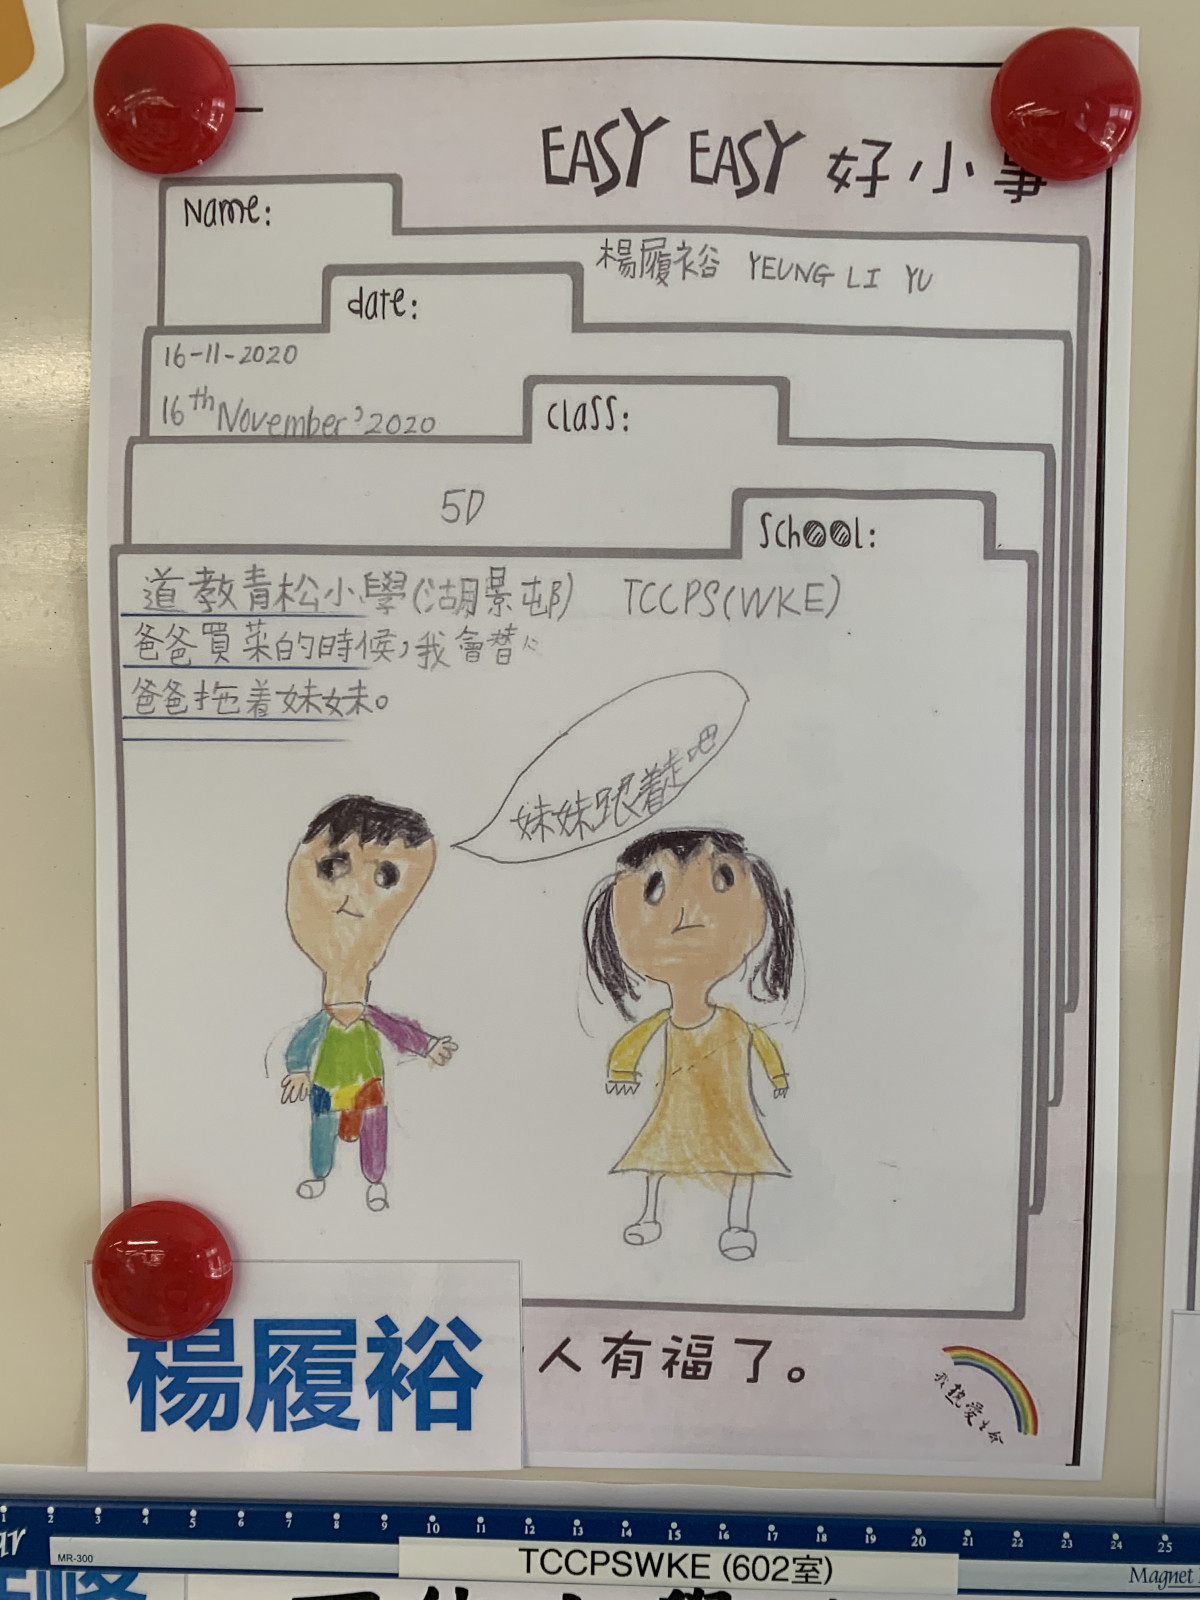 EASY EASY 好小事
Name:
楊履裕 YEUNG LI YU
date:
16-11-2020
16th November'2020
class:
5D
School:
道教青松小學(湖景邨) TCCPS(WKE)
爸爸買菜的時候，我會替
爸爸拖着妹妹。
妹妹跟着走吧
楊履裕
人有福了。
我熱愛生活
1 2 3 4 5 6 7 8 9 10 11 12 13 14 15 16 17 18 19 20 21 22 23 24 25
MR-300
TCCPSWKE (602室)
Magnet